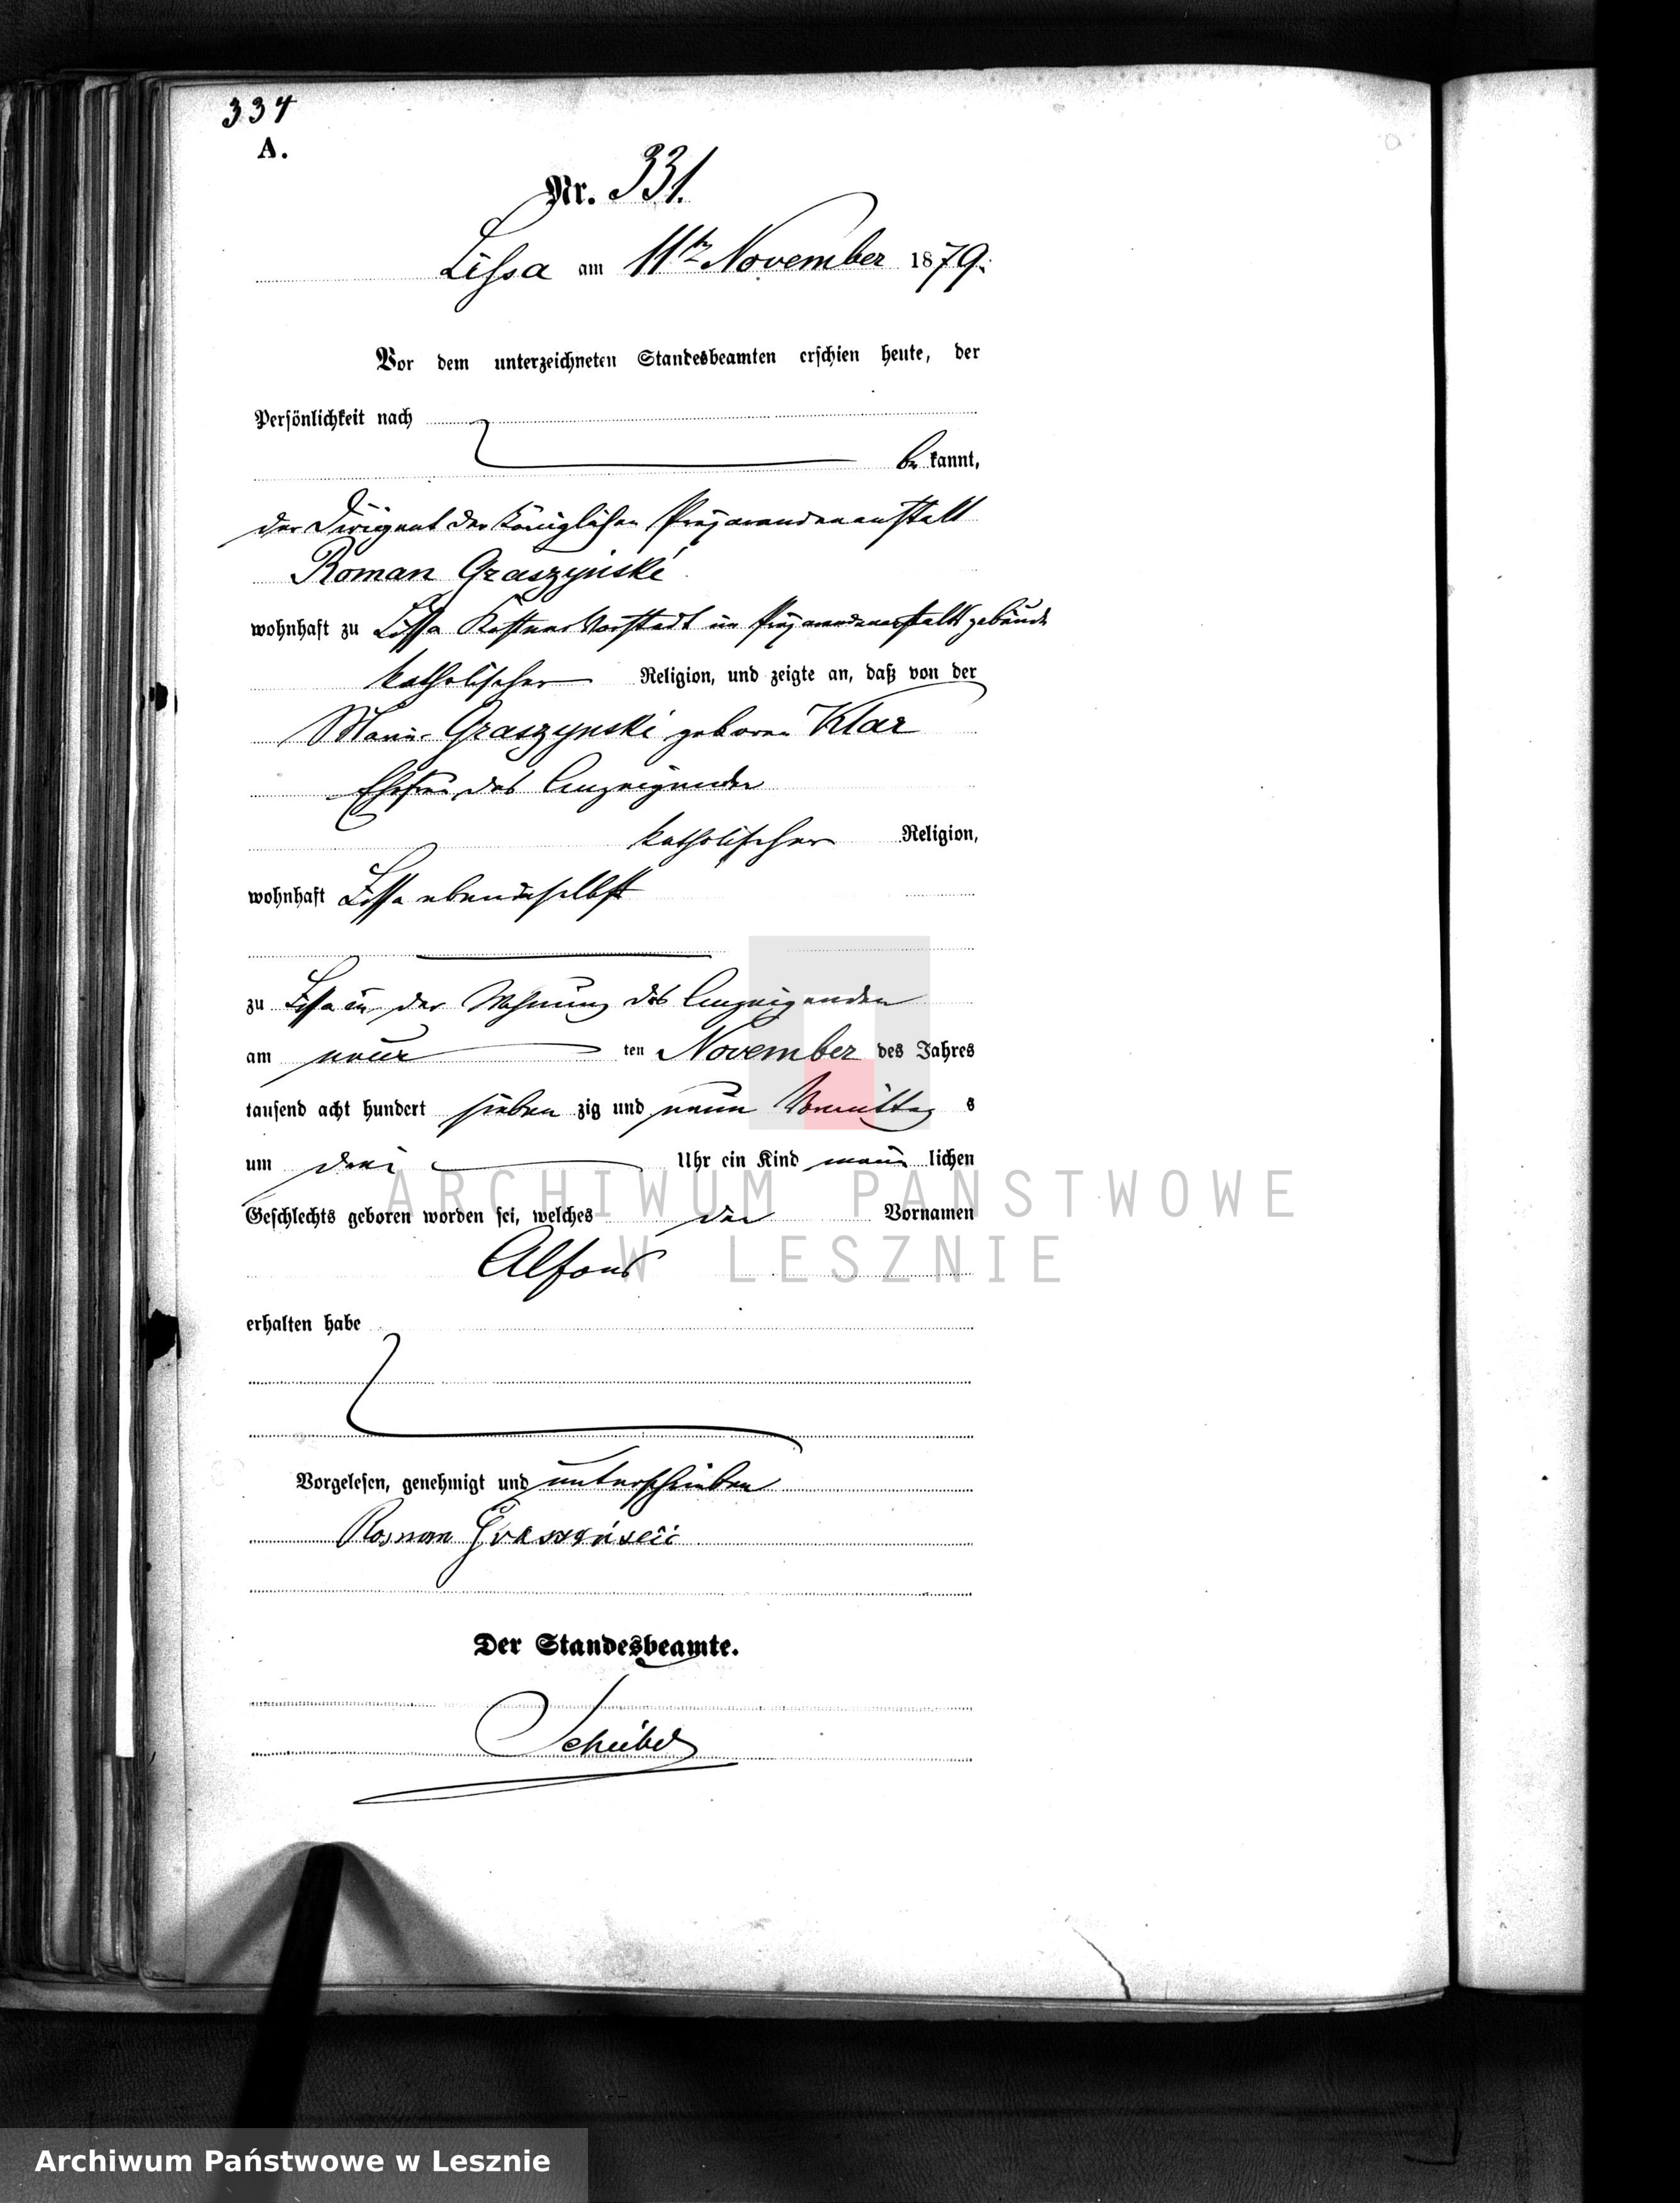 334
A.
Nr. 331.
Lissa am 11ten November 1879.
Vor dem unterzeichneten Standesbeamten erschien heute, der
Persönlichkeit nach
be kannt,
der Dirigent der Königlichen Präparandenanstalt
Roman Graszynski
wohnhaft zu Lissa Kostner Vorstadt im Präparandenanstaltsgebäude
katholischer Religion, und zeigte an, daß von der
Marie Graszynski geboren Klar
Ehefrau des Anzeigenden
katholischer Religion,
wohnhaft Lissa ebendaselbst
zu Lissa in der Wohnung des Anzeigenden
am neun ten November des Jahres
tausend acht hundert sieben zig und neun Vormittag s
um drei Uhr ein Kind männ lichen
Geschlechts geboren worden sei, welches den Vornamen
Alfons
erhalten habe
Vorgelesen, genehmigt und unterschrieben
Roman Graszyński
Der Standesbeamte.
ARCHIWUM PAŃSTWOWE
W LESZNIE
Archiwum Państwowe w Lesznie